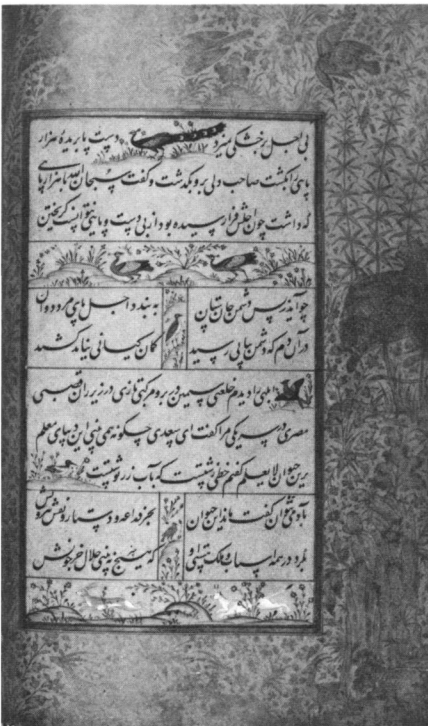 بی اجل بر خشکی نمیرد دست و پا بریدهٔ هزار
پای را بکشت صاحب دلی برو بگذشت و گفت سبحان الله با هزار پای
که داشت چون اجلش فرا رسیده بود از بی دست و پایی نتوانست گریختن
چو آید ز پس دشمن جان ستان ببندد اجل پای مرد دوان
در آن دم که دشمن پیاپی رسید کمان کیانی نباید کشید
ابلهی را دیدم خلعتی سمین در بر و مرکبی تازی در زیر ران قصبی
مصری در سر یکی مرا گفت ای سعدی چگونه همی بینی این دیبای معلم
برین حیوان لا یعلم گفتم خطی زشتست که بآب زر نوشتست
بآدمی نتوان گفت ماند این حیوان بجز دراعه و دستار و نقش بیرونش
بگرد در همه اسباب و ملک هستی او که هیچ چیز نبینی حلال جز خونش